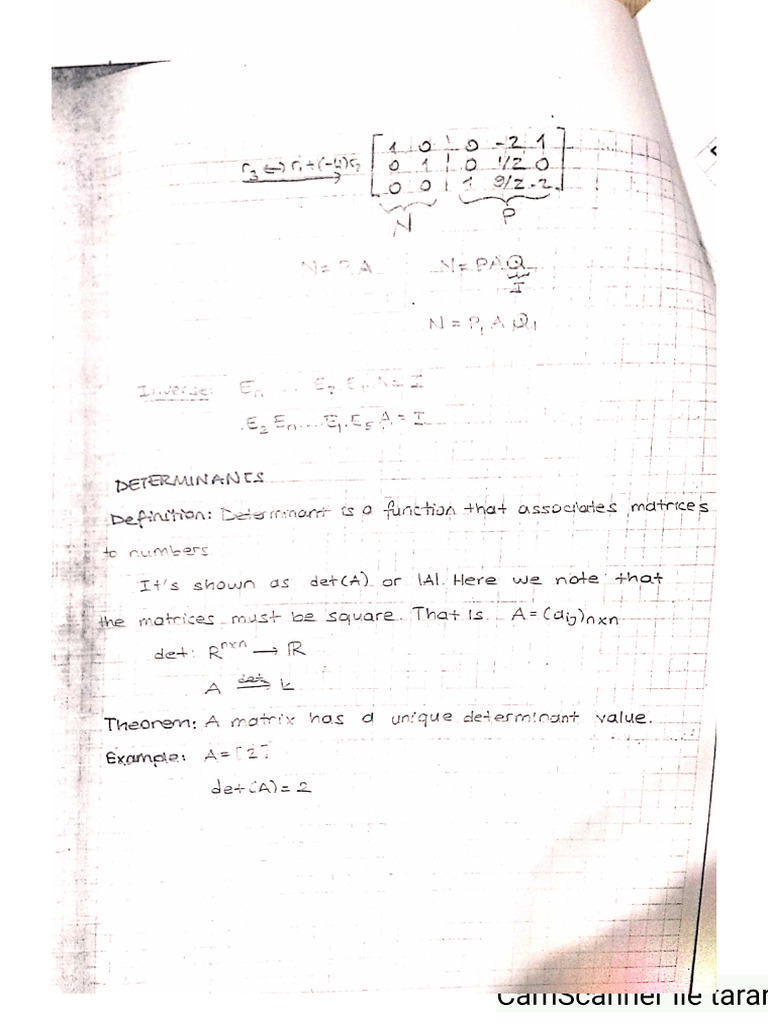 r₃ ↔ r₁+(-4)r₂ [1 0 | 0 -2 1
0 1 | 0 1/2 0
0 0 | 1 9/2 -2]
N P
N = P A N = PAQ
I
N = P₁ A Q₁
Inverse: Eₙ ... E₂ E₁ A = I
E₂ Eₙ .... E₁. E₅ A = I
DETERMINANTS
Definition: Determinant is a function that associates matrices
to numbers
It's shown as det(A) or |A|. Here we note that
the matrices must be square. That is A = (aij)nxn
det: Rⁿˣⁿ → R
A det→ k
Theorem: A matrix has a unique determinant value.
Example: A = [2]
det(A) = 2
CamScanner ile tarar